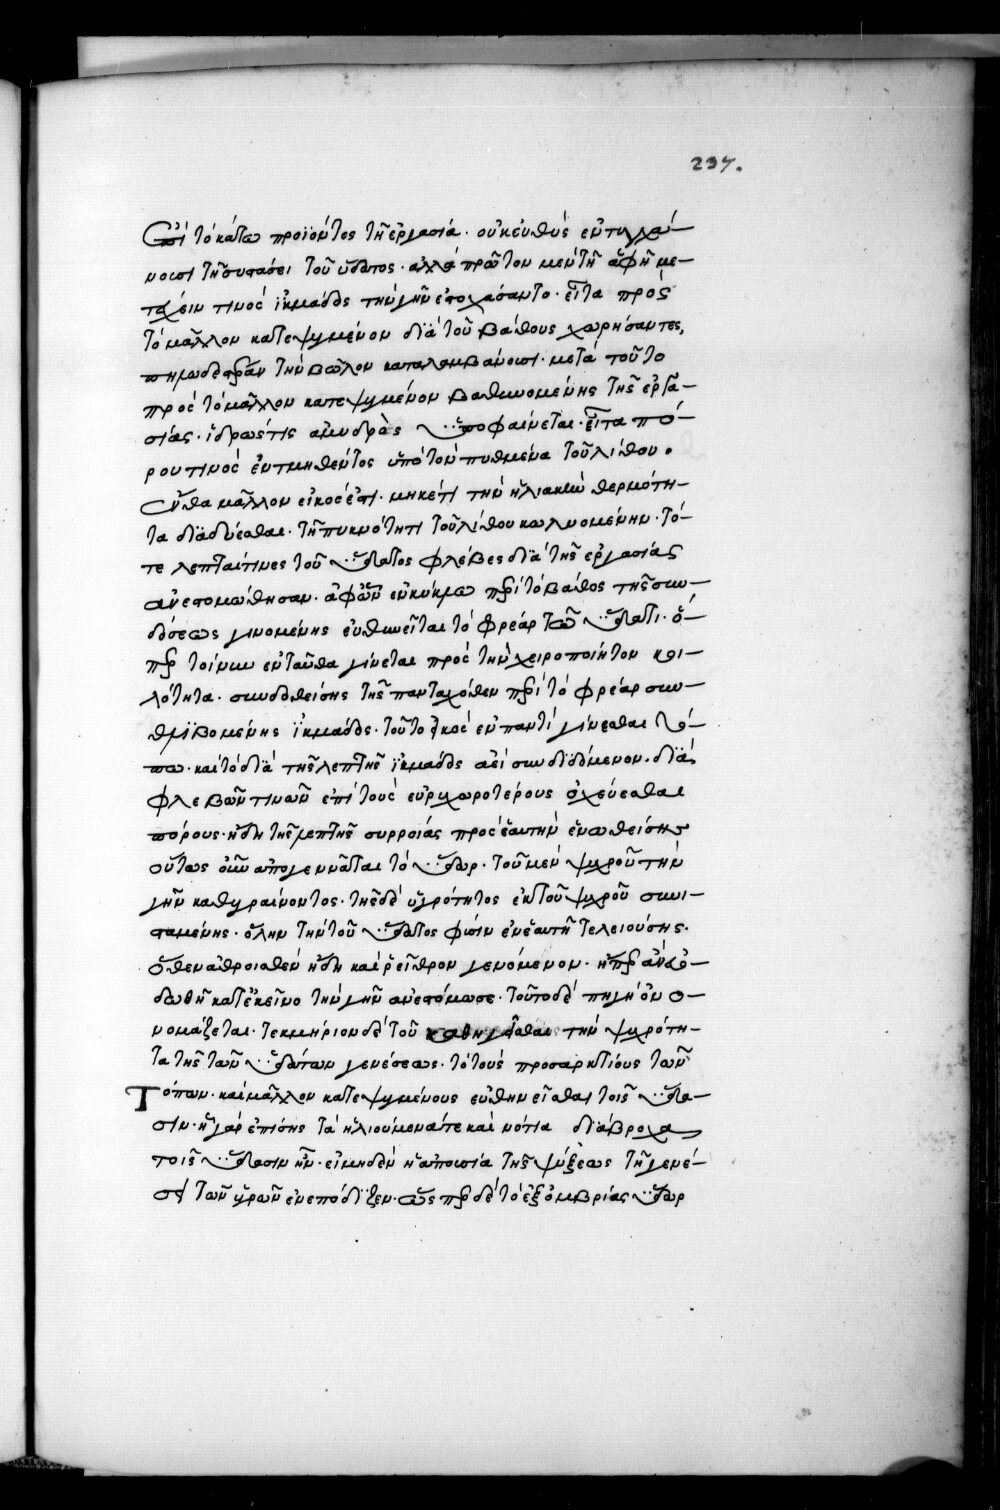 237.
ἐπὶ τὸ κάτω προϊόντος τῆς ἐργασίας. οὐκ εὐθὺς ἐντυγχά-
νουσι τῇ συστάσει τοῦ ὕδατος. ἀλλὰ πρῶτον μὲν τῇ ἁφῇ με-
τασχεῖν τινὸς ἰκμάδος τὴν γῆν ἐστοχάσαντο. εἶτα πρὸς
τὸ μᾶλλον κατεψυγμένον διὰ τοῦ βάθους χωρήσαντες,
πηλωδεστέραν τὴν βῶλον καταλαμβάνουσι. μετὰ τοῦτο
πρὸς τὸ μᾶλλον κατεψυγμένον βαθυνομένης τῆς ἐργα-
σίας. ἱδρώς τις ἀμυδρὸς ὑποφαίνεται. εἶτα πό-
ρου τινὸς ἐντμηθέντος ὑπὸ τὸν πυθμένα τοῦ λίθου.
ἔνθα μᾶλλον εἰκός ἐστι. μηκέτι τὴν ἡλιακὴν θερμότη-
τα διαδύεσθαι. τῇ πυκνότητι τοῦ λίθου κωλυομένην. τό-
τε λεπταί τινες τοῦ ὕδατος φλέβες διὰ τῆς ἐργασίας
ἀνεστομώθησαν. ἀφ ὧν ἐν κύκλῳ περὶ τὸ βάθος τῆς συν-
δόσεως γινομένης εὐθηνεῖται τὸ φρέαρ τῷ ὕδατι. ὅ-
περ τοίνυν ἐνταῦθα γίνεται πρὸς τὴν χειροποίητον κοι-
λότητα. συνδοθείσης τῆς πανταχόθεν περὶ τὸ φρέαρ συν-
θλιβομένης ἰκμάδος. τοῦτο εἰκὸς ἐν παντὶ γίνεσθαι τό-
πῳ. καὶ τὸ διὰ τῆς λεπτῆς ἰκμάδος ἀεὶ συνδιδόμενον. διὰ
φλεβῶν τινῶν ἐπὶ τοὺς εὐρυχωροτέρους ὀχεύεσθαι
πόρους. ἤδη τῆς λεπτῆς συρροίας πρὸς ἑαυτὴν ἑνωθείσης
οὕτως οὖν ἀπογεννᾶται τὸ ὕδωρ. τοῦ μὲν ψυχροῦ τὴν
γῆν καθυγραίνοντος. τῆς δὲ ὑγρότητος ἐκ τοῦ ψυχροῦ συνι-
σταμένης. ὅλην τὴν τοῦ ὕδατος φύσιν ἐν ἑαυτῇ τελειούσης.
ὅθεν ἀθροισθὲν ἤδη καὶ ῥεῖθρον γενόμενον. ᾗπερ ἂν ἐν-
δωθῇ κατ ἐκεῖνο τὴν γῆν ἀνεστόμωσε. τοῦτο δὲ πηγὴ ὂν ὀ-
νομάζεται. τεκμήριον δὲ τοῦ καθηγεῖσθαι τὴν ψυχρότη-
τα τῆς τῶν ὑδάτων γενέσεως. τὸ τοὺς προσαρκτίους τῶν
τόπων. καὶ μᾶλλον κατεψυγμένους εὐθηνεῖσθαι τοῖς ὕδα-
σιν. ἢ γὰρ ἐπίσης τὰ ἡλιούμενά τε καὶ νότια διάβροχα
τοῖς ὕδασιν ἦν. εἰ μηδὲν ἡ ἀπουσία τῆς ψύξεως τῇ γενέ-
σει τῶν ὑγρῶν ἐνεπόδιζεν. ὥσπερ δὲ τὸ ἐξ ὀμβρίας ὕδωρ